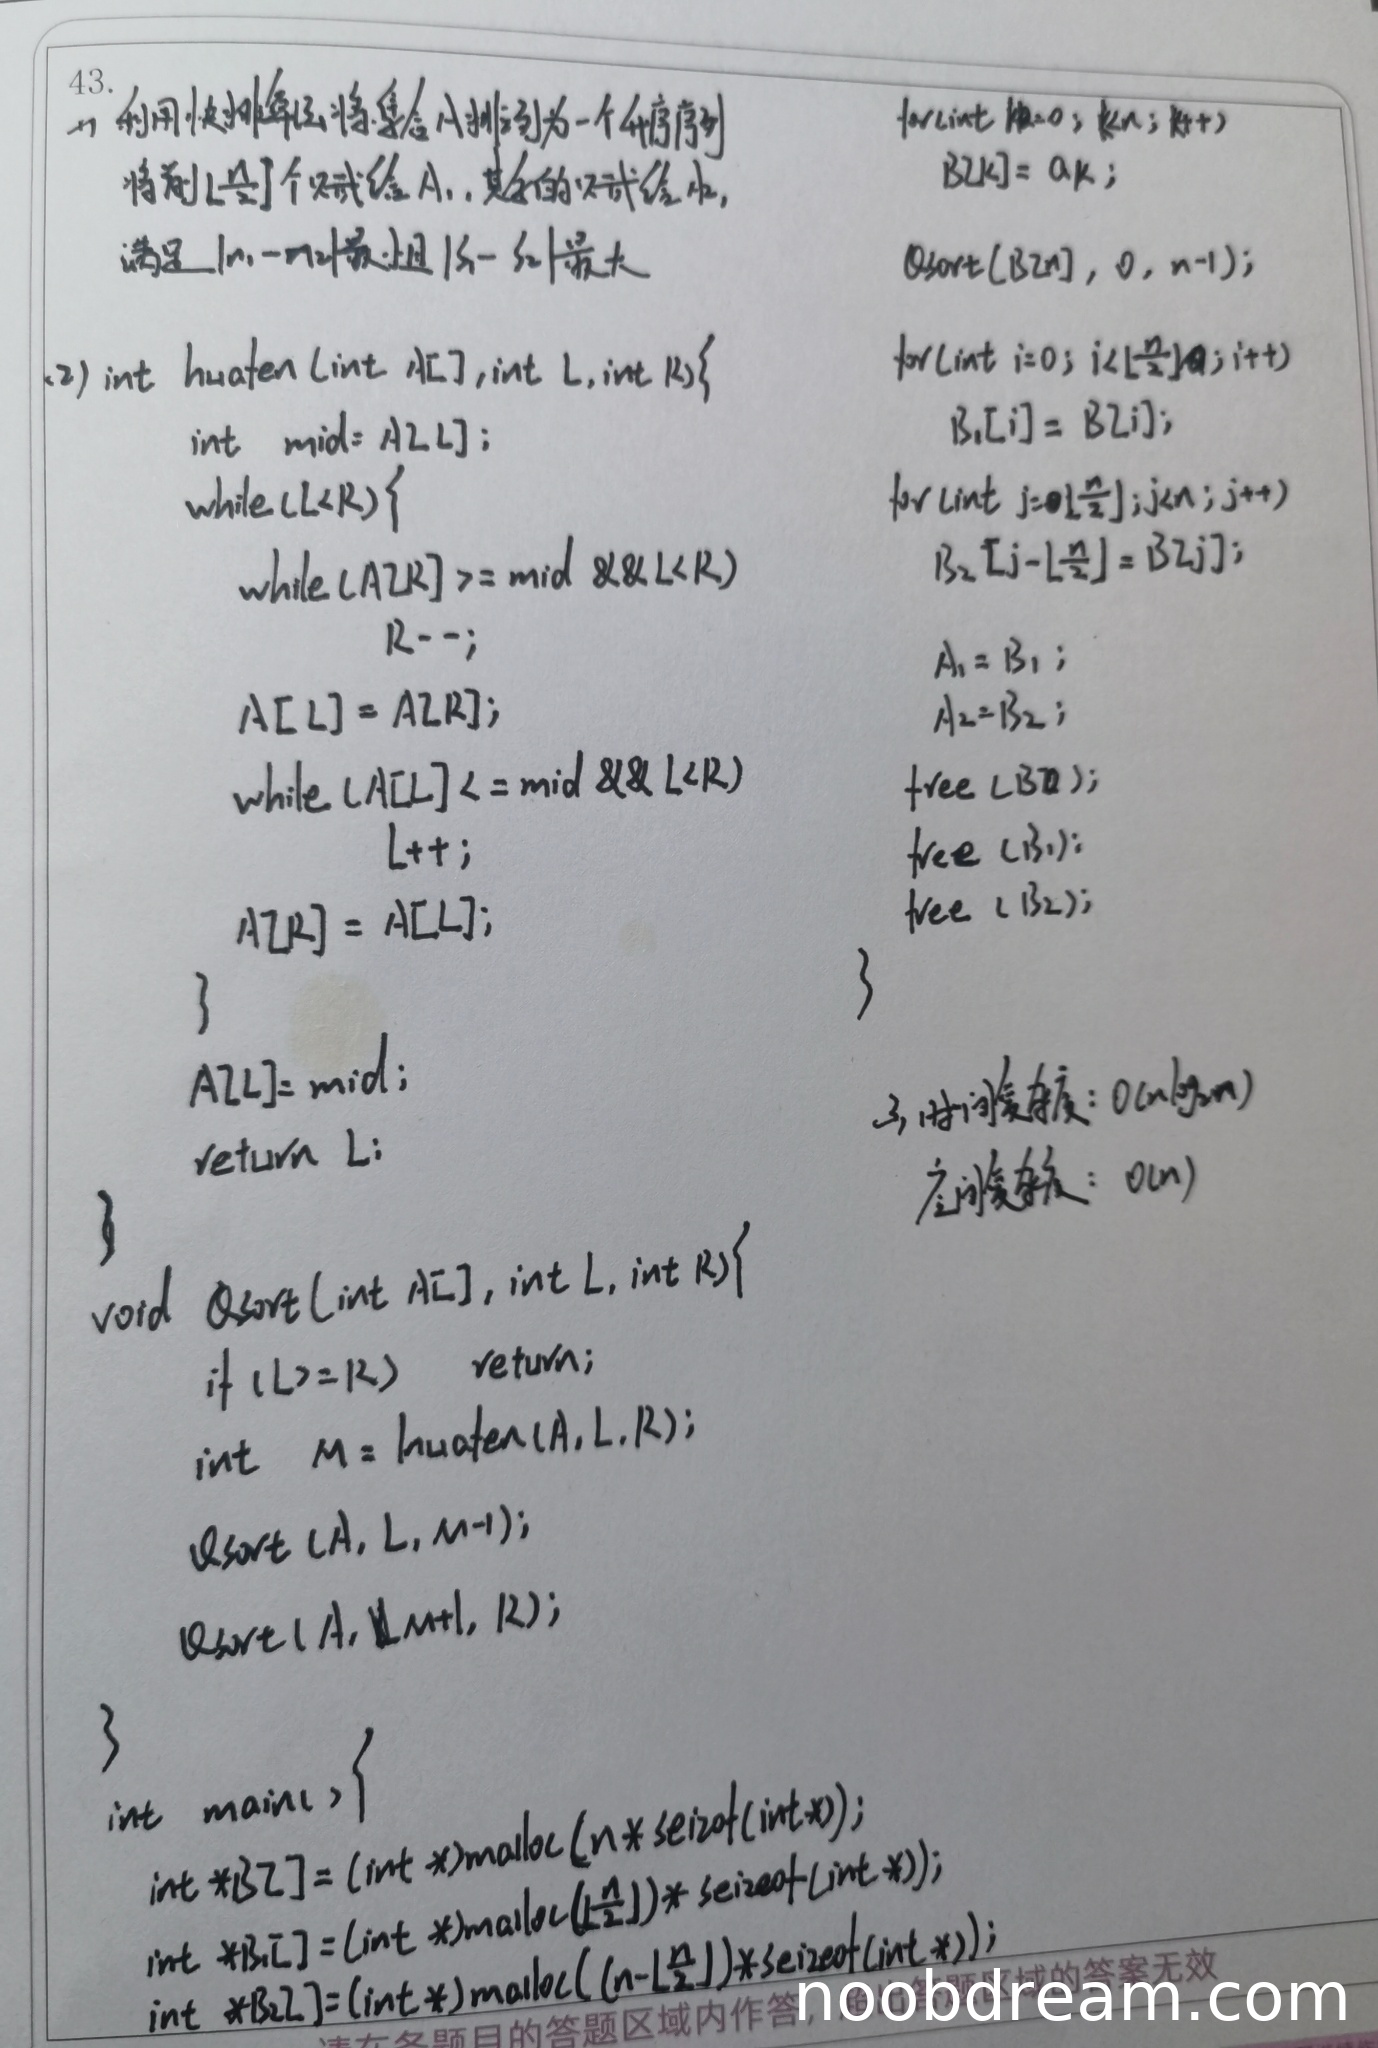 43.
(1) 利用快排算法,将集合A排列为一个升序序列
将前⌊n/2⌋个赋给A₁,其余的赋给A₂,
满足|n₁-n₂|最小且|S₁-S₂|最大
(2) int huafen(int A[], int L, int R){
int mid=A[L];
while(L<R){
while(A[R]>=mid && L<R)
R--;
A[L]=A[R];
while(A[L]<=mid && L<R)
L++;
A[R]=A[L];
}
A[L]=mid;
return L;
}
void Qsort(int A[], int L, int R){
if(L>=R) return;
int M=huafen(A,L,R);
Qsort(A,L,M-1);
Qsort(A,M+1,R);
}
int main(){
int *B[]=(int *)malloc(n*seizof(int*));
int *B₁[]=(int *)malloc(⌊n/2⌋)*seizeof(int*));
int *B₂[]=(int *)malloc((n-⌊n/2⌋)*seizeof(int*));
for(int k=0; k<n; k++)
B[k]=ak;
Qsort(B[n], 0, n-1);
for(int i=0; i<⌊n/2⌋; i++)
B₁[i]=B[i];
for(int j=⌊n/2⌋; j<n; j++)
B₂[j-⌊n/2⌋=B[j];
A₁=B₁;
A₂=B₂;
free(B);
free(B₁);
free(B₂);
}
3, 时间复杂度: O(nlog₂n)
空间复杂度: O(n)
请在各题目的答题区域内作答,超出答题区域的答案无效
noobdream.com